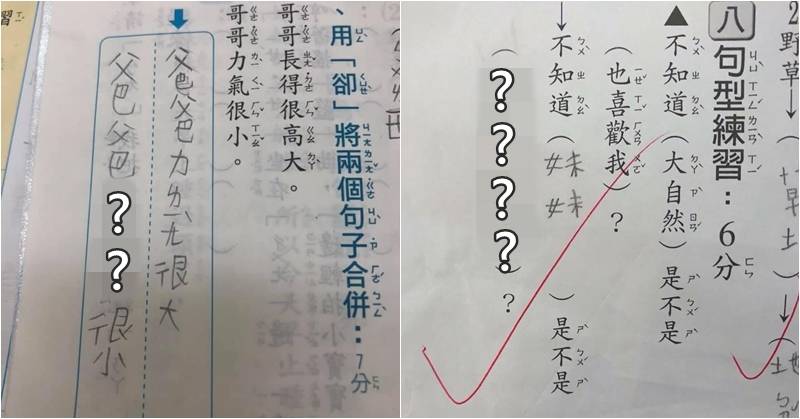 習
、用「卻」將兩個句子合併：7分
哥哥長得很高大。
哥哥力氣很小。
爸爸力ㄌㄧㄤ很大
爸爸？？很小
野草→(
八 句型練習：6分
▲不知道（大自然）是不是
（也喜歡我）？
→不知道（妹妹）是不是
（？？？？）？